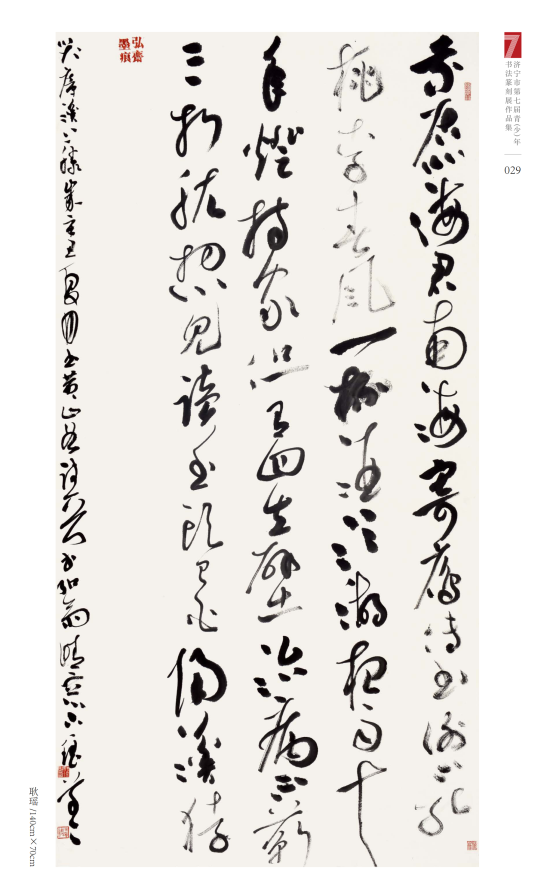 7
济宁市第七届青(少)年
书法篆刻展作品集
029
我居北海君南海寄雁傳書謝不能
桃李春風一杯酒江湖夜雨十
年燈持家但有四立壁治病不蘄
三折肱想見讀書頭已白隔溪猿
哭瘴溪藤 丑夏月書黃山谷詩
弘齋
墨痕
耿瑶 /140cm×70cm